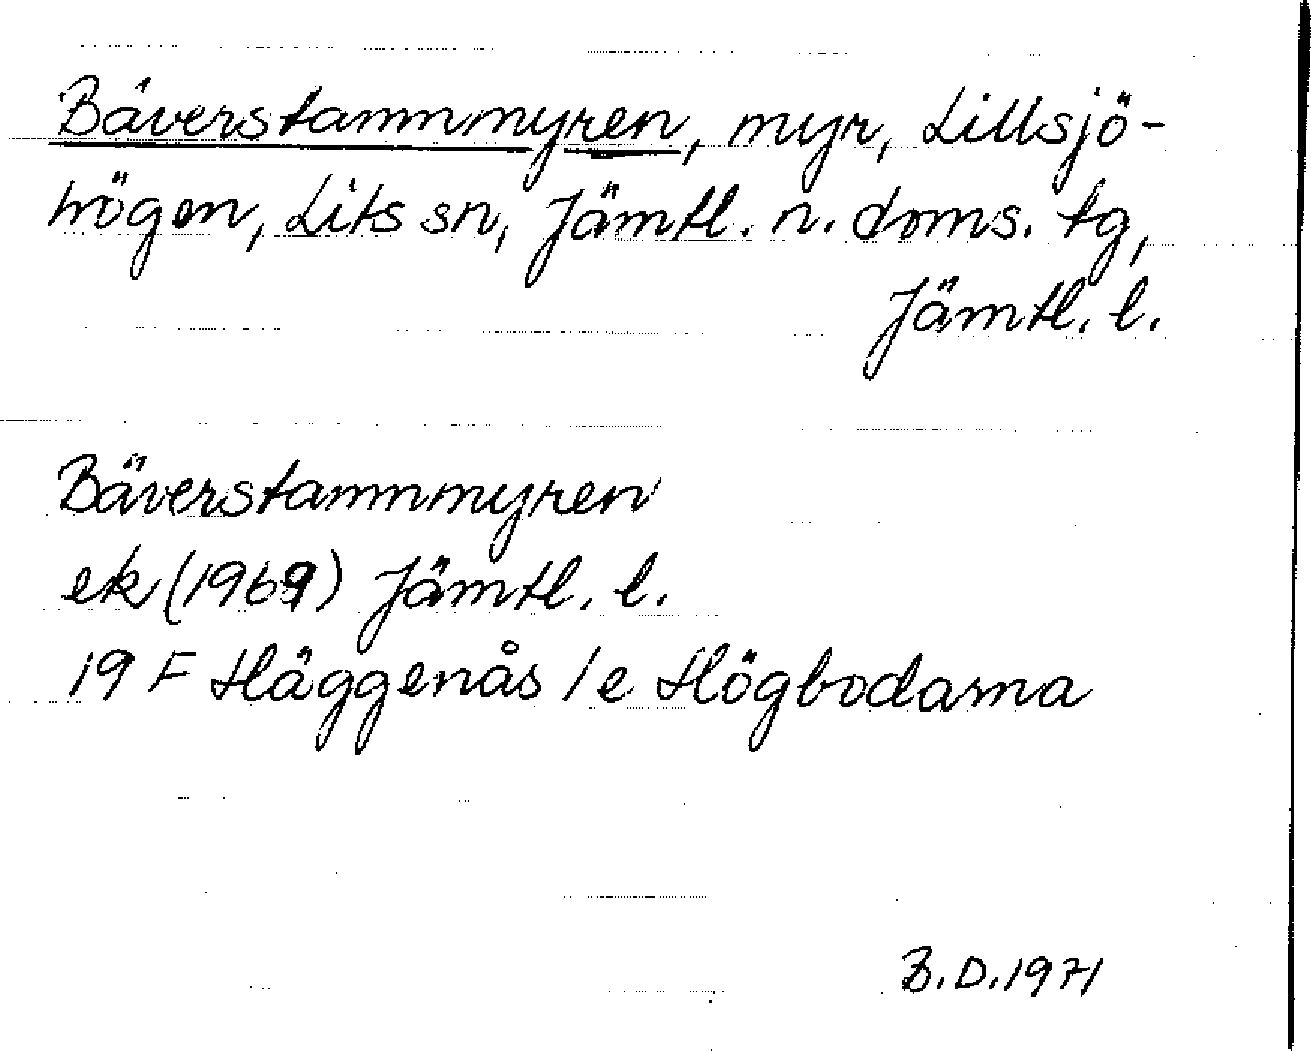 Bäverstammmyren, myr, Lillsjö-
högen, Lits sn, Jämtl. n. doms. tg,
Jämtl. l.
Bäverstammmyren
ek (1969) Jämtl. l.
19 F Häggenås 1e Högbodarna
B.D. 1971